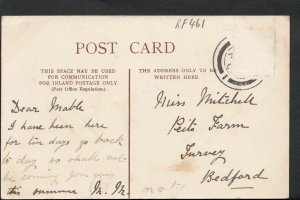 RF461
POST CARD
THIS SPACE MAY BE USED
FOR COMMUNICATION
FOR INLAND POSTAGE ONLY.
(Post Office Regulation.)
THE ADDRESS ONLY TO BE
WRITTEN HERE
Dear Mable
I have been here
for ten days go back
to day so shake not
be coming your way
this summer M. M.
not
Miss Mitchell
Peits Farm
Turvey
Bedford